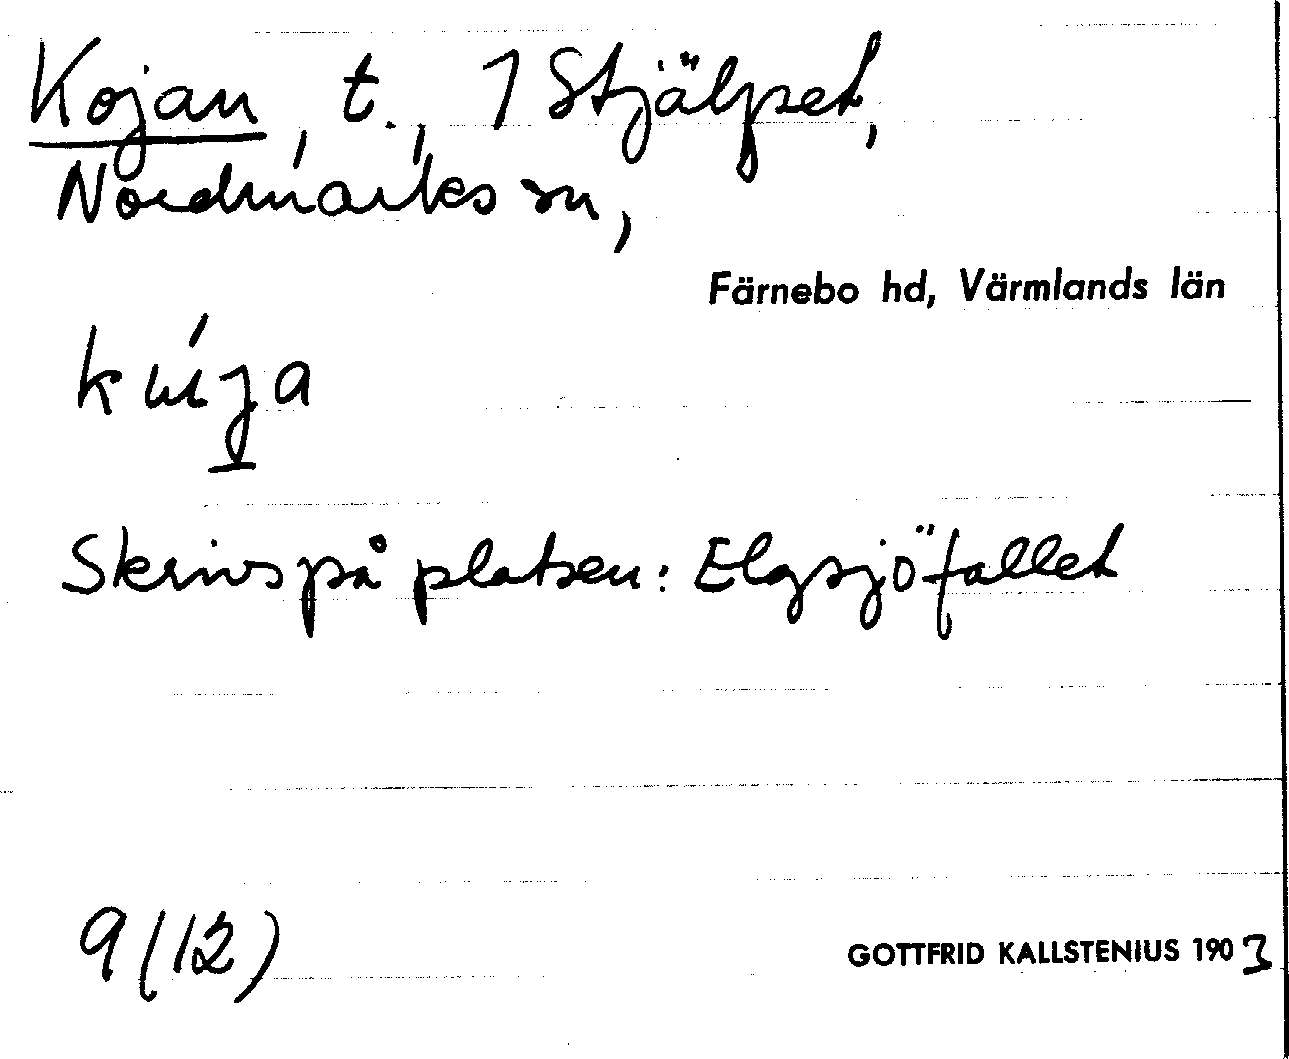 Kojan, t., 1 Stjälpet,
Nordmarks sn,
Färnebo hd, Värmlands län
kúja
Skrivs på platsen: Elgsjöfallet
9 (12) GOTTFRID KALLSTENIUS 1903